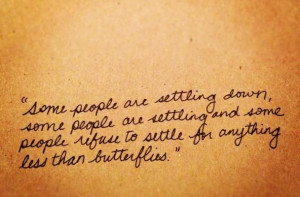 "Some people are settling down,
some people are settling and some
people refuse to settle for anything
less than butterflies."